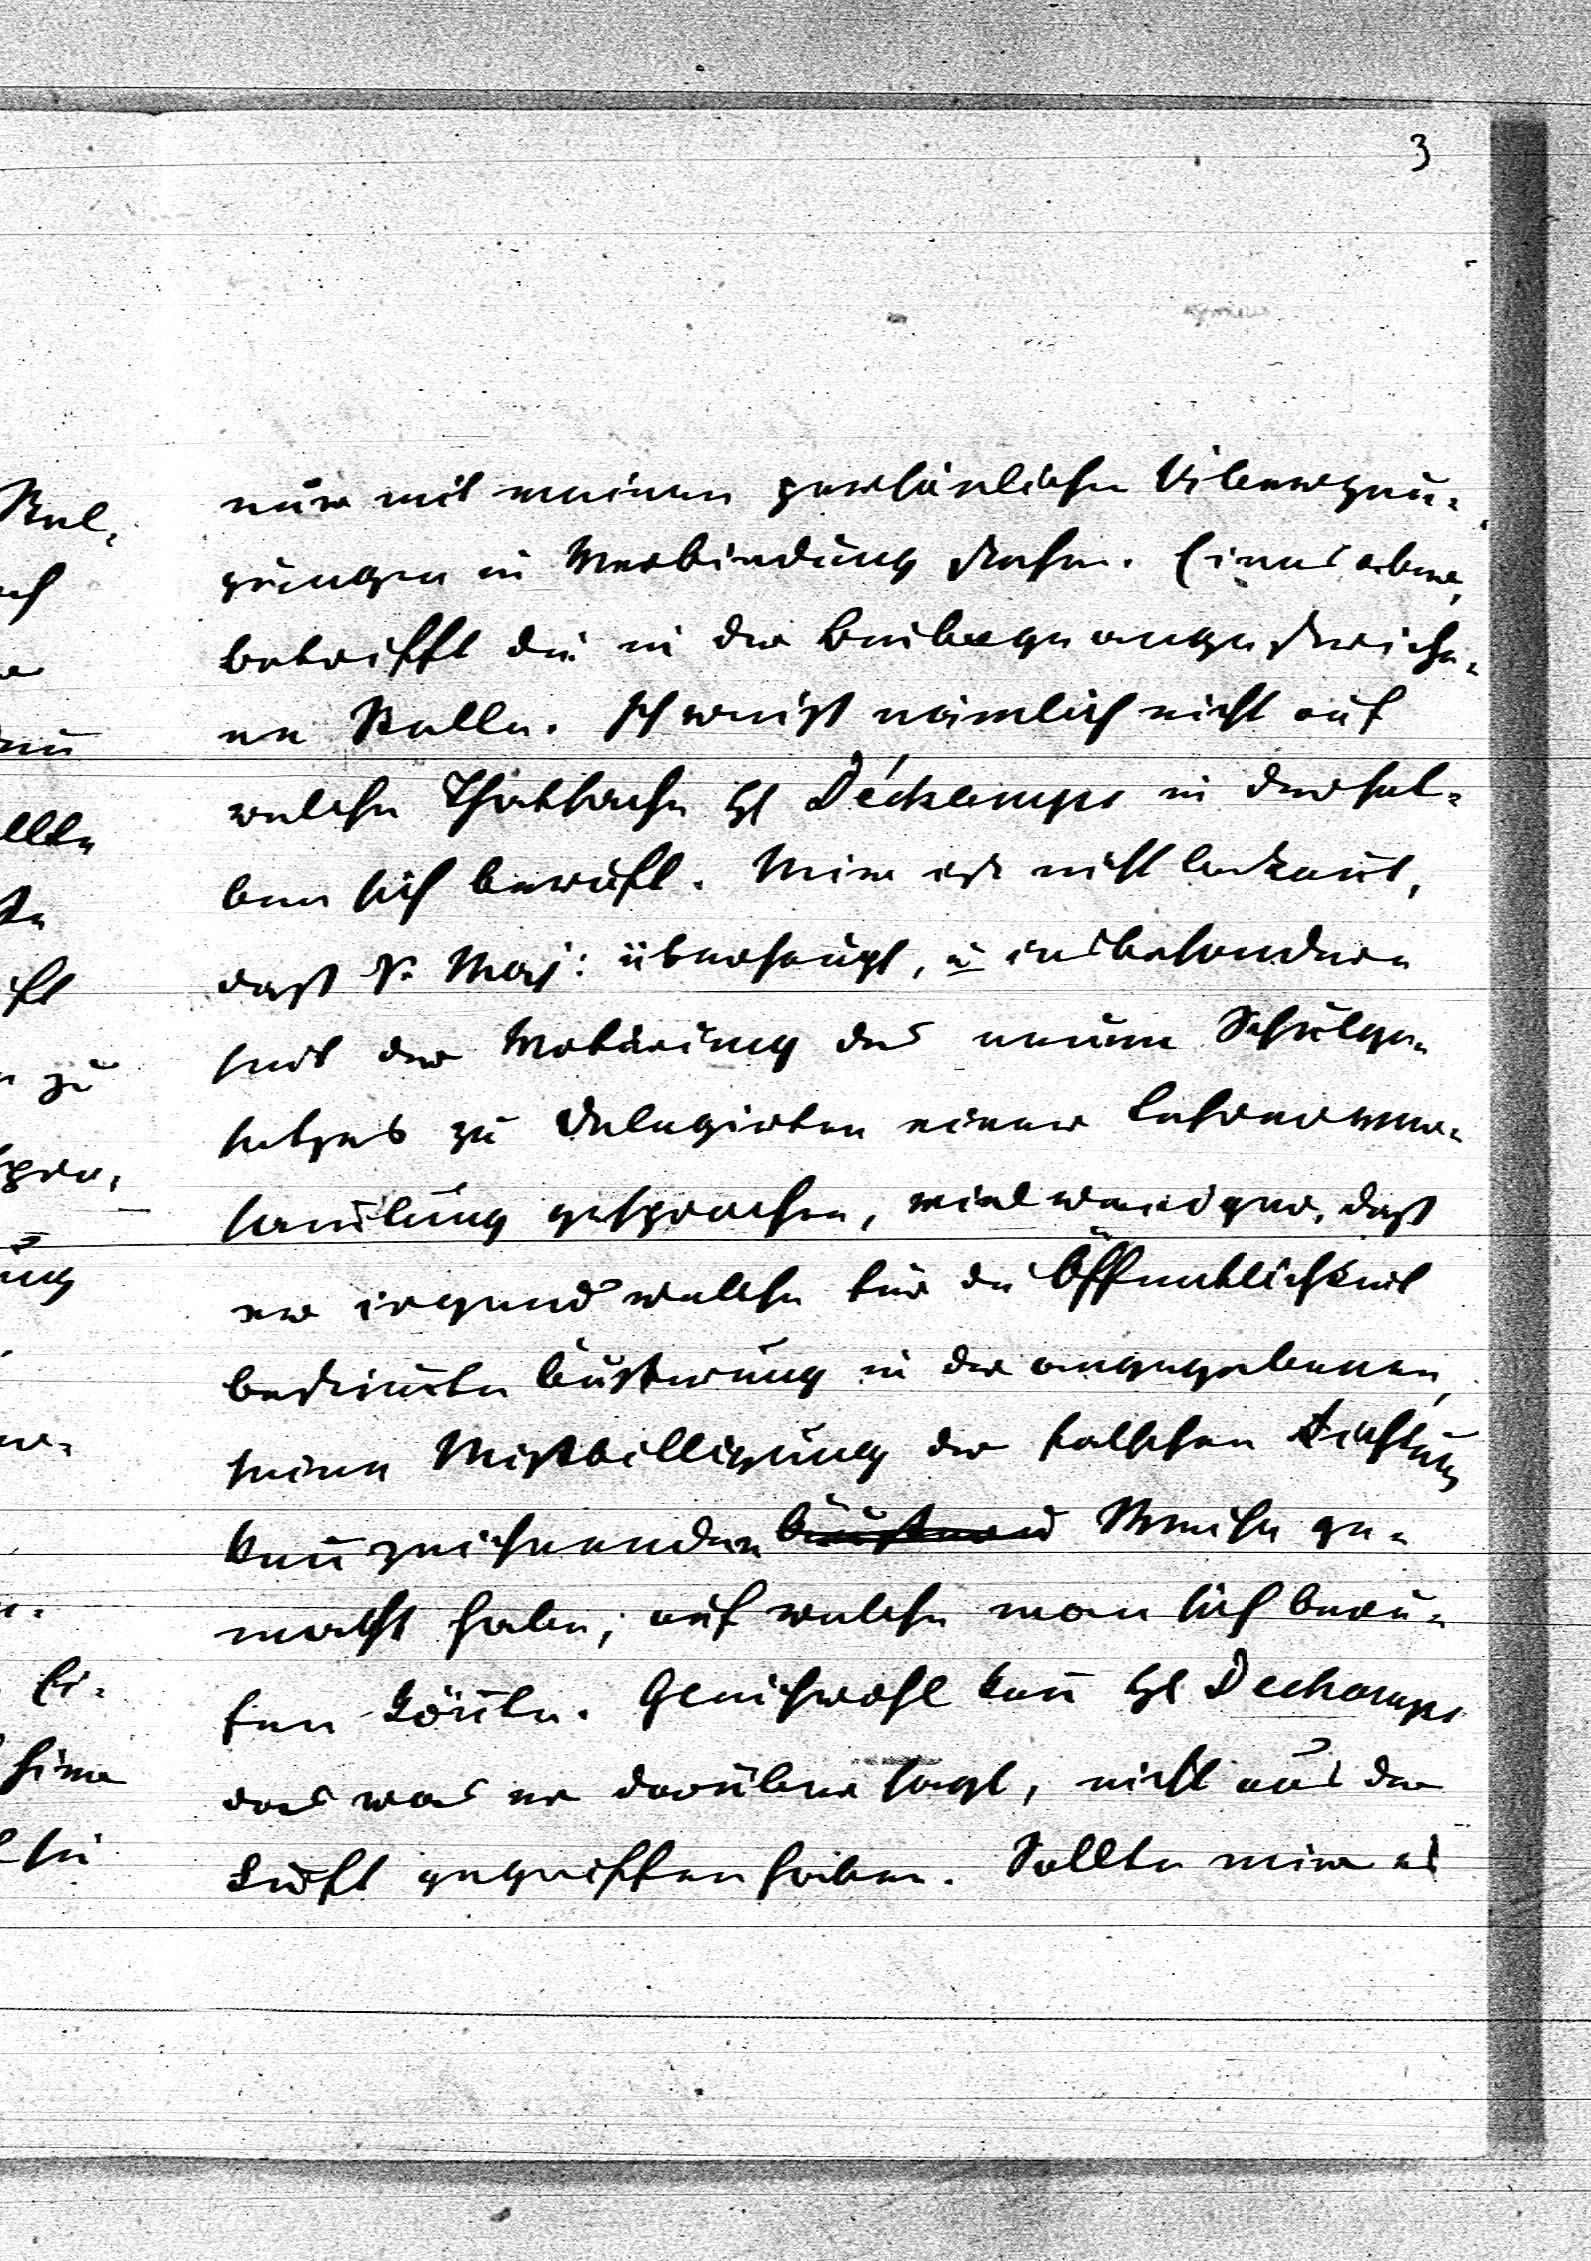 3
nur mit meinen persönlichen Ueberzeu-
gungen in Verbindung stehen. Eines aber,
betrifft die in der Beilage angestriche-
ne Stelle. Ich weiß nämlich nicht auf
welche Thatsache H Déchamps in dersel-
ben sich beruft. Mir ist nicht bekannt,
daß S. Maj: überhaupt, u insbesondere
seit der Votirung des neuen Schulge-
setzes zu Delegirten einer Lehrerver-
samlung gesprochen, viel weniger, daß
er irgend welche für die Öffentlichkeit
bestimte Äußerung in der angegebenen,
seine Mißbilligung der falschen Richtung
kennzeichnenden Weise ge-
macht habe, auf welche man sich beru-
fen könnte. Gleichwohl kann H Dechamps
das was er darüber sagt, nicht aus der
Luft gegriffen haben. Sollte mir es